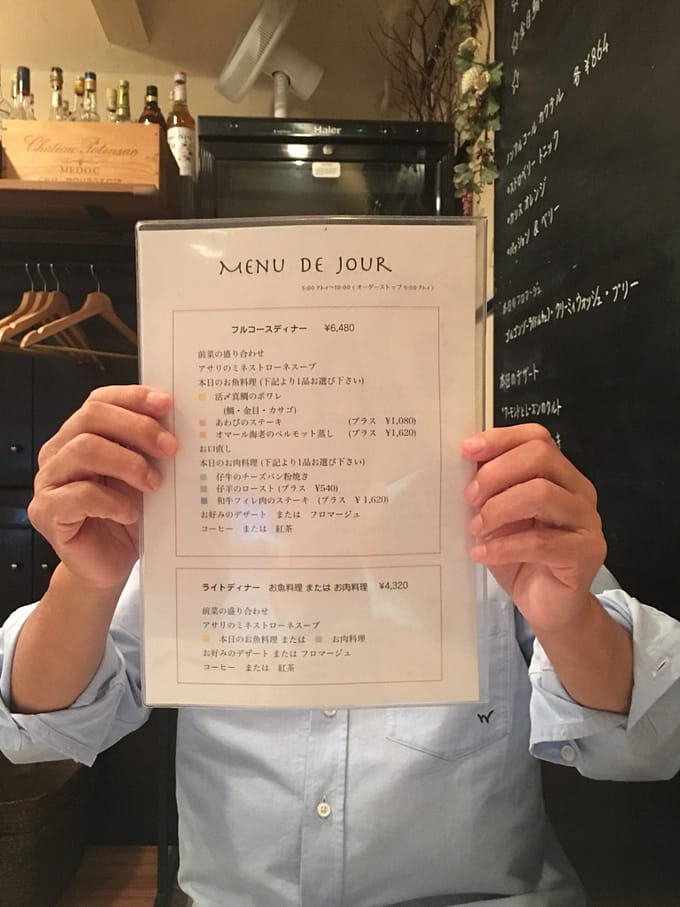 Haier
Château Potensac
MEDOC
MENU DE JOUR
5:00 PM〜10:00 ( オーダーストップ 9:00 PM )
フルコースディナー ¥6,480
前菜の盛り合わせ
アサリのミネストローネスープ
本日のお魚料理 (下記より1品お選び下さい)
活〆真鯛のポワレ
(鯛・金目・カサゴ)
あわびのステーキ (プラス ¥1,080)
オマール海老のベルモット蒸し (プラス ¥1,620)
お口直し
本日のお肉料理 (下記よりお選び下さい)
仔牛のチーズパン粉焼き
仔羊のロースト (プラス ¥540)
和牛フィレ肉のステーキ (プラス ¥ 1,620)
お好みのデザート または フロマージュ
コーヒー または 紅茶
ライトディナー お魚料理 または お肉料理 ¥4,320
前菜の盛り合わせ
アサリのミネストローネスープ
本日のお魚料理 または お肉料理
お好みのデザート または フロマージュ
コーヒー または 紅茶
ノンアルコール カクテル 各¥864
ストロベリー トニック
カシス オレンジ
パッション & ベリー
本日のフロマージュ
クリーミィウォッシュ・ブリー
本日のデザート
アーモンドとレーズンのタルト
W